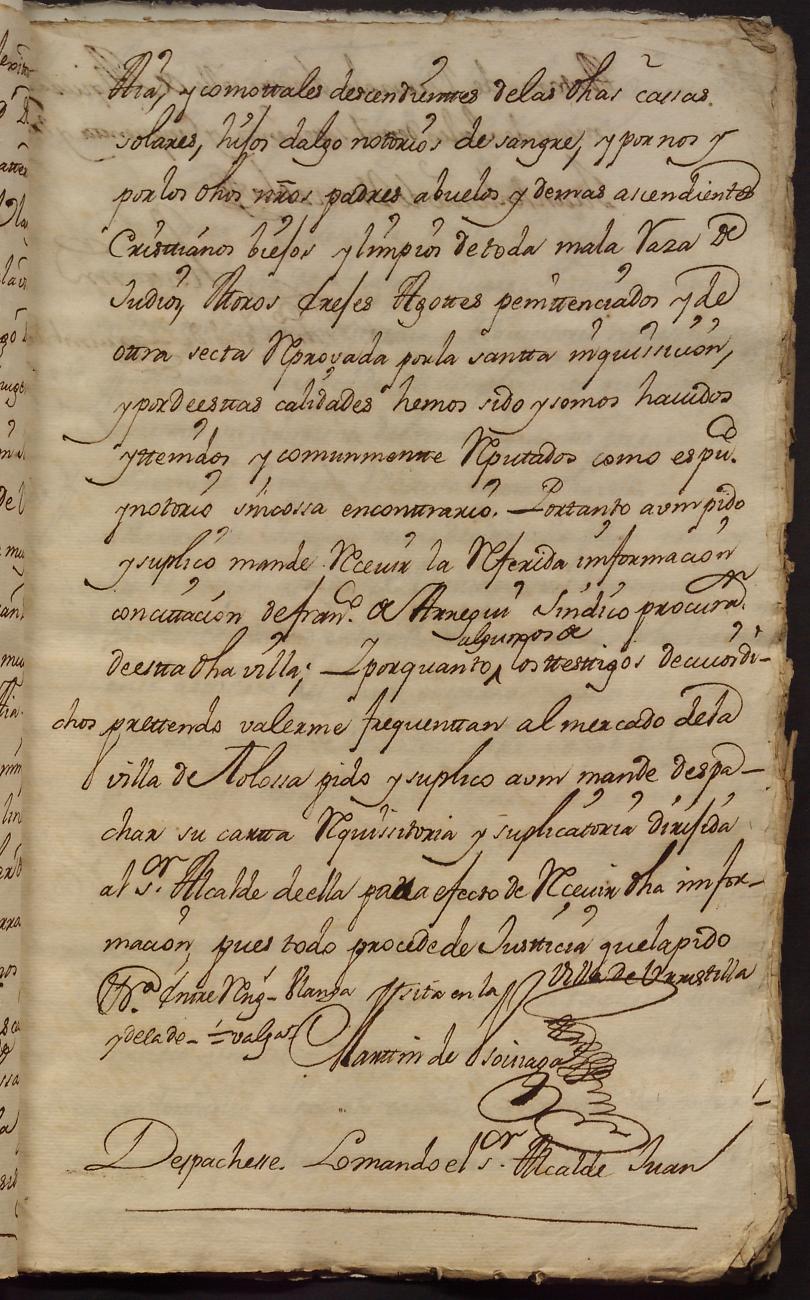 ttia, y como ttales descendienttes de las dhas cassas
solares, hijos dalgo nottorios de sangre, y por nos y
por los dhos nr̃os padres abuelos y demas ascendientes
Cristtianos biejos y limpios de toda mala Raza de
Judios, Moros herejes Agottes penittenciados y de
ottra secta Reprovada por la santta inquissicion,
y por de esttas calidades hemos sido y somos havidos
y ttenidos y comunmentte Reputados como es pu.co
y nottorio sin cossa en conttrario. Por tanto a vm pido
y suplico mande Recevir la Referida informacion
con cittacion de fran.co de Arregui Sindico procura.or
de estta dha villa; Y por quanto algunos de los ttesttigos de cuios di-
chos prettendo valerme frequenttan al mercado de la
villa de Tolossa pido y suplico a vm mande despa-
char su cartta Requissitoria y suplicatoria dirijida
al s.or Alcalde de ella para efecto de Recevir dha infor-
macion, pues todo procede de Justticia que la pido
Entre Reng- sita en la villa de Urrestilla
y de la de - valga
Marttin de
Despachesse. Lo mando el s.or Alcalde Juan